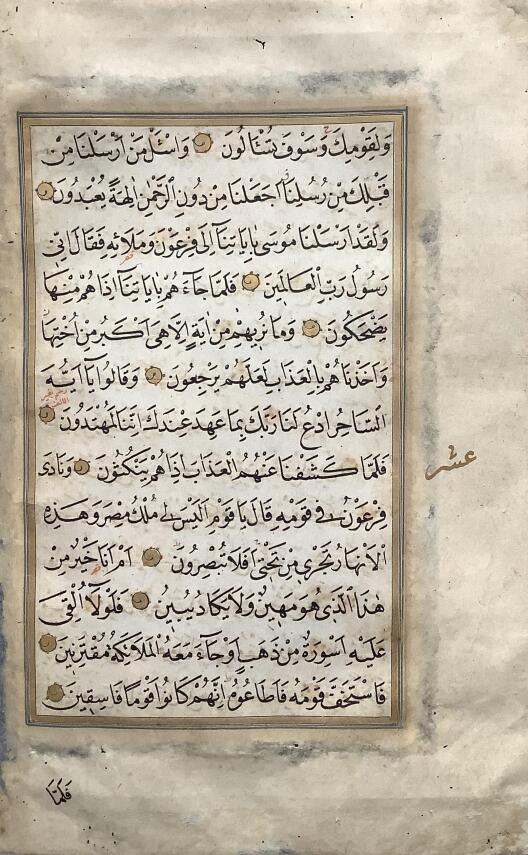 وَلِقَوْمِكَ وَسَوْفَ تُسْئَالُونَ وَاسْئَلْ مَنْ اَرْسَلْنَا مِنْ
قَبْلِكَ مِنْ رُسُلِنَا اَجَعَلْنَا مِنْ دُونِ الرَّحْمٰنِ اٰلِهَةً يُعْبَدُونَ
وَلَقَدْ اَرْسَلْنَا مُوسَى بِاٰيَاتِنَا اِلَى فِرْعَوْنَ وَمَلَائِهِ فَقَالَ اِنّىِ
رَسُولُ رَبِّ الْعَالَمِينَ فَلَمَّا جَاءَهُمْ بِاٰيَاتِنَا اِذَا هُمْ مِنْهَا
يَضْحَكُونَ وَمَا نُرِيهِمْ مِنْ اٰيَةٍ اِلَّا هِىَ اَكْبَرُ مِنْ اُخْتِهَا
وَاَخَذْنَاهُمْ بِالْعَذَابِ لَعَلَّهُمْ يَرْجِعُونَ وَقَالُوا يَا اَيُّهَ
السَّاحِرُ ادْعُ لَنَا رَبَّكَ بِمَا عَهِدَ عِنْدَكَ اِنَّنَا لَمُهْتَدُونَ
فَلَمَّا كَشَفْنَا عَنْهُمُ الْعَذَابَ اِذَا هُمْ يَنْكُثُونَ وَنَادَى
عشر
فِرْعَوْنُ فِى قَوْمِهِ قَالَ يَا قَوْمِ اَلَيْسَ لِى مُلْكُ مِصْرَ وَهَذِهِ
الْاَنْهَارُ تَجْرِى مِنْ تَحْتِى اَفَلَا تُبْصِرُونَ اَمْ اَنَا خَيْرٌ مِنْ
هٰذَا الَّذِى هُوَ مَهِينٌ وَلَا يَكَادُ يُبِينُ فَلَوْلَا اُلْقِىَ
عَلَيْهِ اَسْوِرَةٌ مِنْ ذَهَبٍ اَوْ جَاءَ مَعَهُ الْمَلَائِكَةُ مُقْتَرِنِينَ
فَاسْتَخَفَّ قَوْمَهُ فَاَطَاعُوهُ اِنَّهُمْ كَانُوا قَوْمًا فَاسِقِينَ
فَلَمَّا